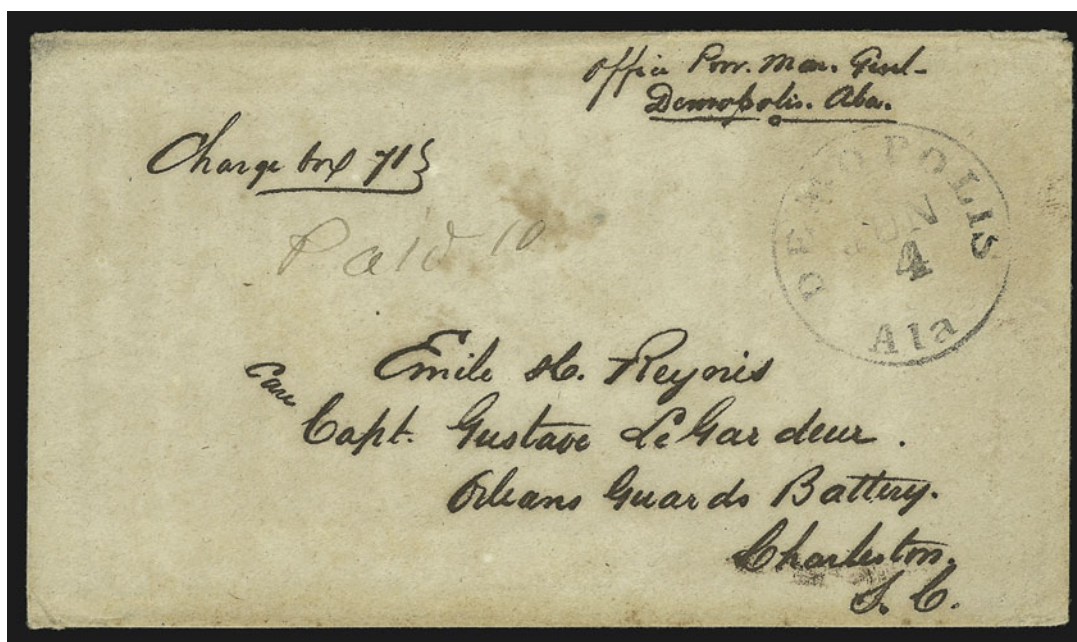 Office Prov. Mar. Genl-
Demopolis. Ala.
Charge box 71
Paid 10
DEMOPOLIS
JUN
4
Ala
Emile H. Reynès
Care
Capt. Gustave LeGardeur.
Orleans Guards Battery.
Charleston.
S. C.